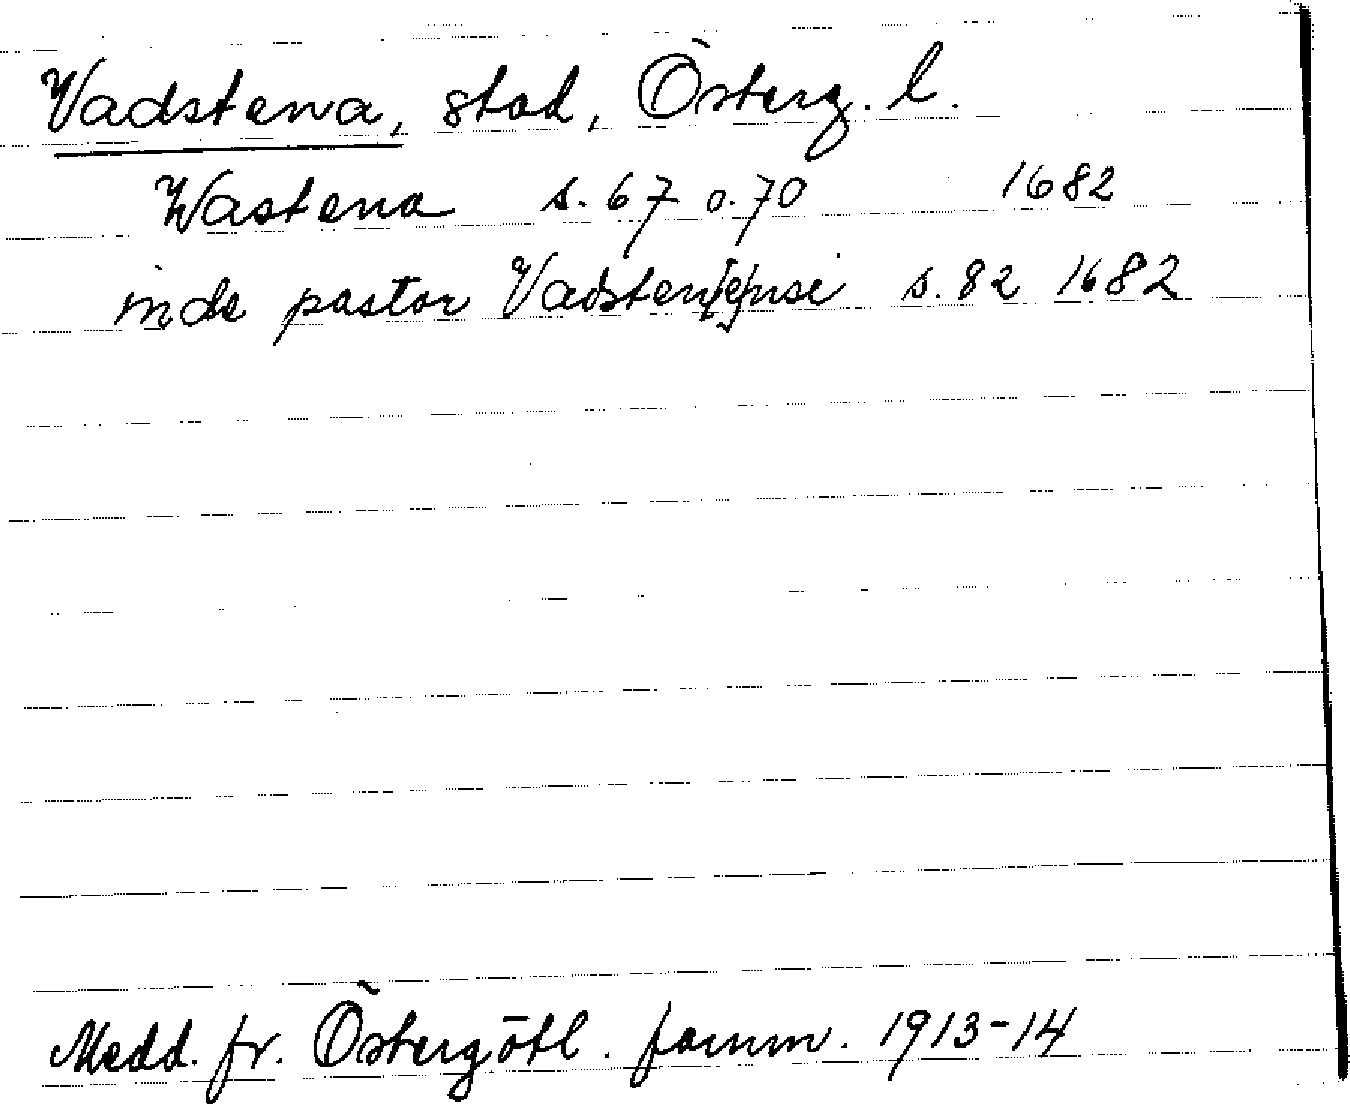 Vadstena, stad, Österg. l.
Wastena s. 67 o. 70 1682
inde pastor Vadsten[e]nsi s. 82 1682
Medd. fr. Östergötl. fornm. 1913-14